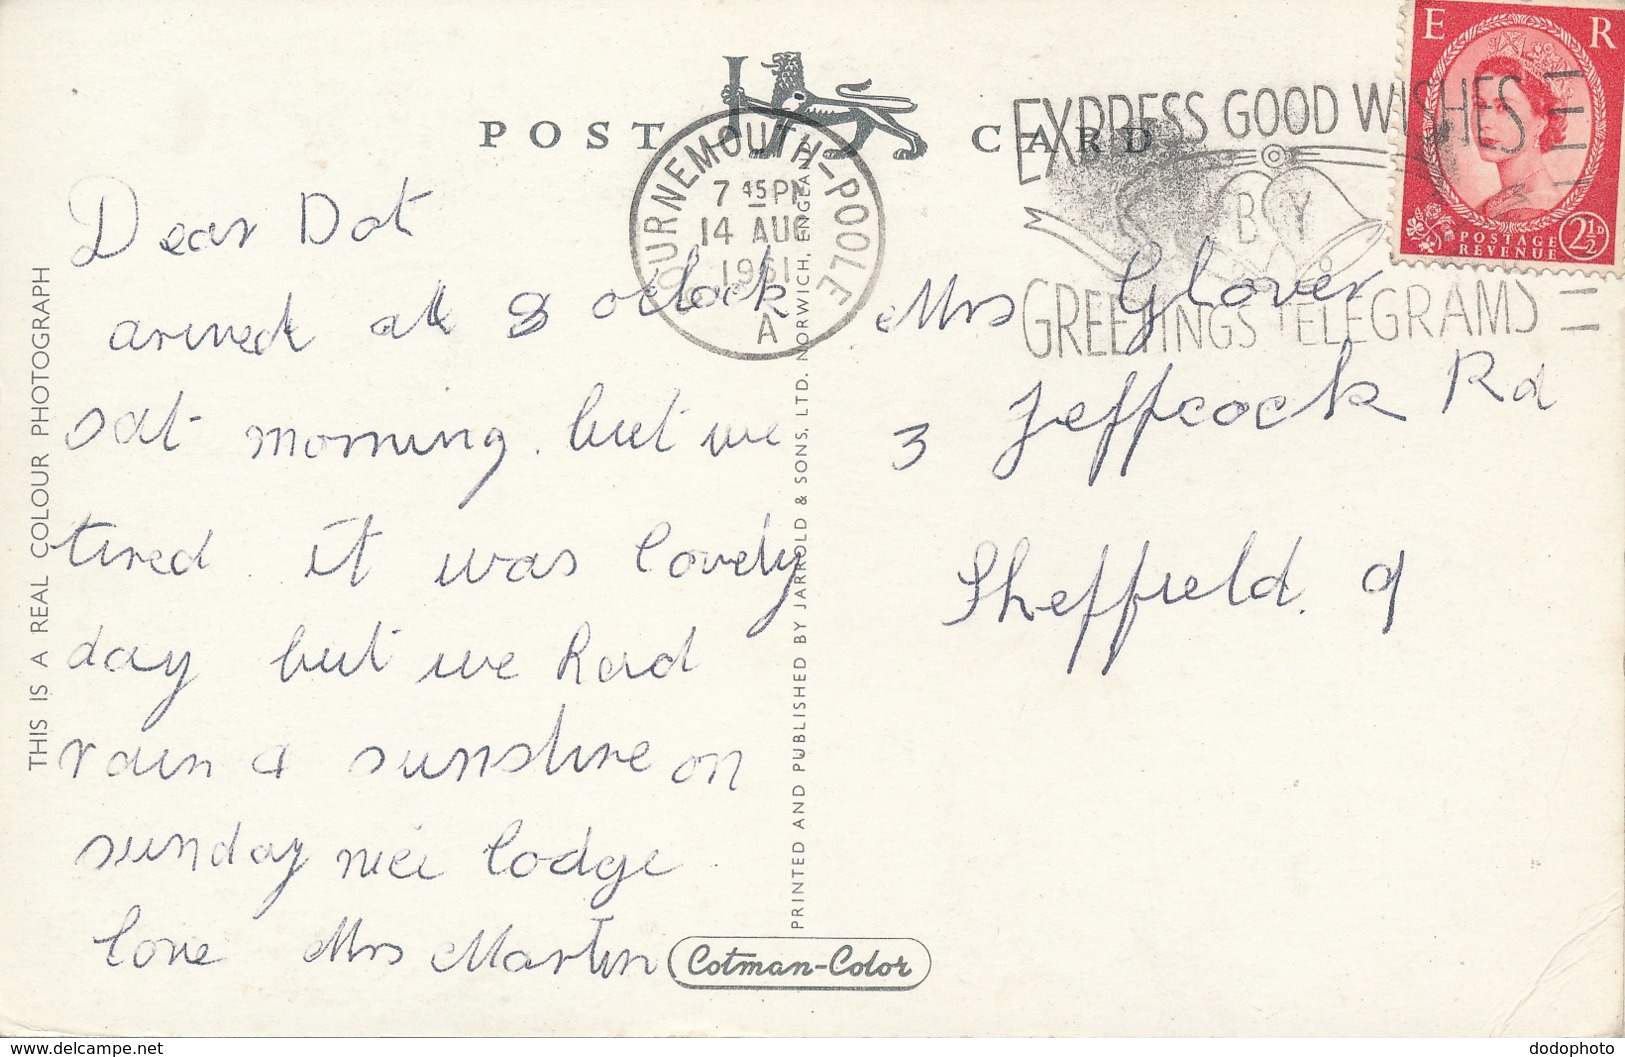 POST CARD
E R
POSTAGE
REVENUE
2½D
BOURNEMOUTH-POOLE
7 45 PM
14 AUG
1961
A
EXPRESS GOOD WISHES
BY
GREETINGS TELEGRAMS
Dear Dot
arived at 8 oclock
sat morning. but we
tired it was lovely
day but we had
rain & sunshine on
sunday nice lodge
love Mrs Martin
Mrs Glover
3 Jeffcock Rd
Sheffield. 9
THIS IS A REAL COLOUR PHOTOGRAPH
PRINTED AND PUBLISHED BY JARROLD & SONS, LTD. NORWICH, ENGLAND
Cotman-Color
https://www.delcampe.net
dodophoto